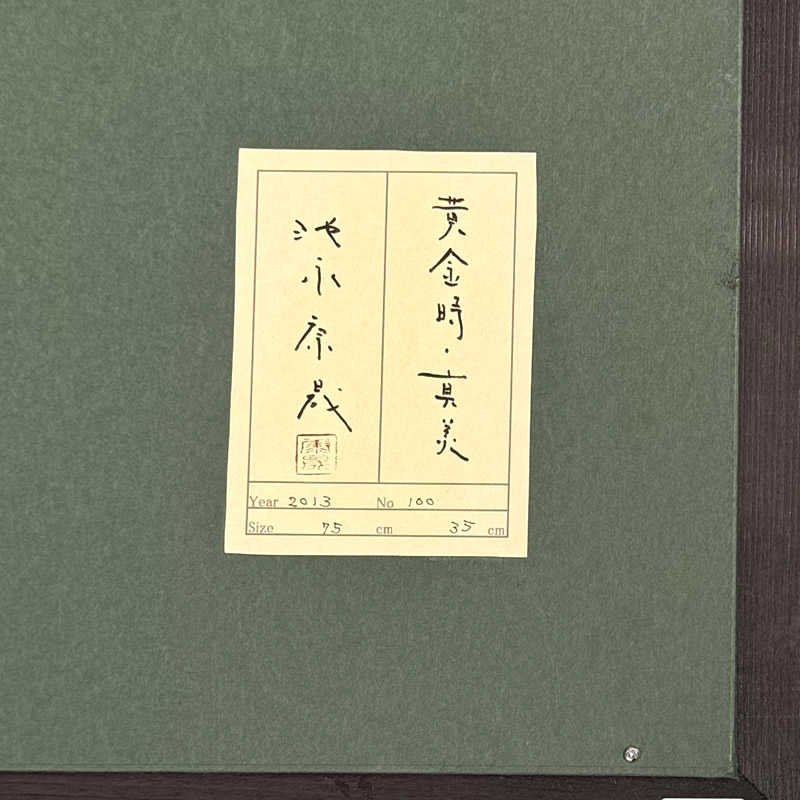 黄金時・真美
池永康晟
Year 2013 No 100
Size 75 cm 35 cm